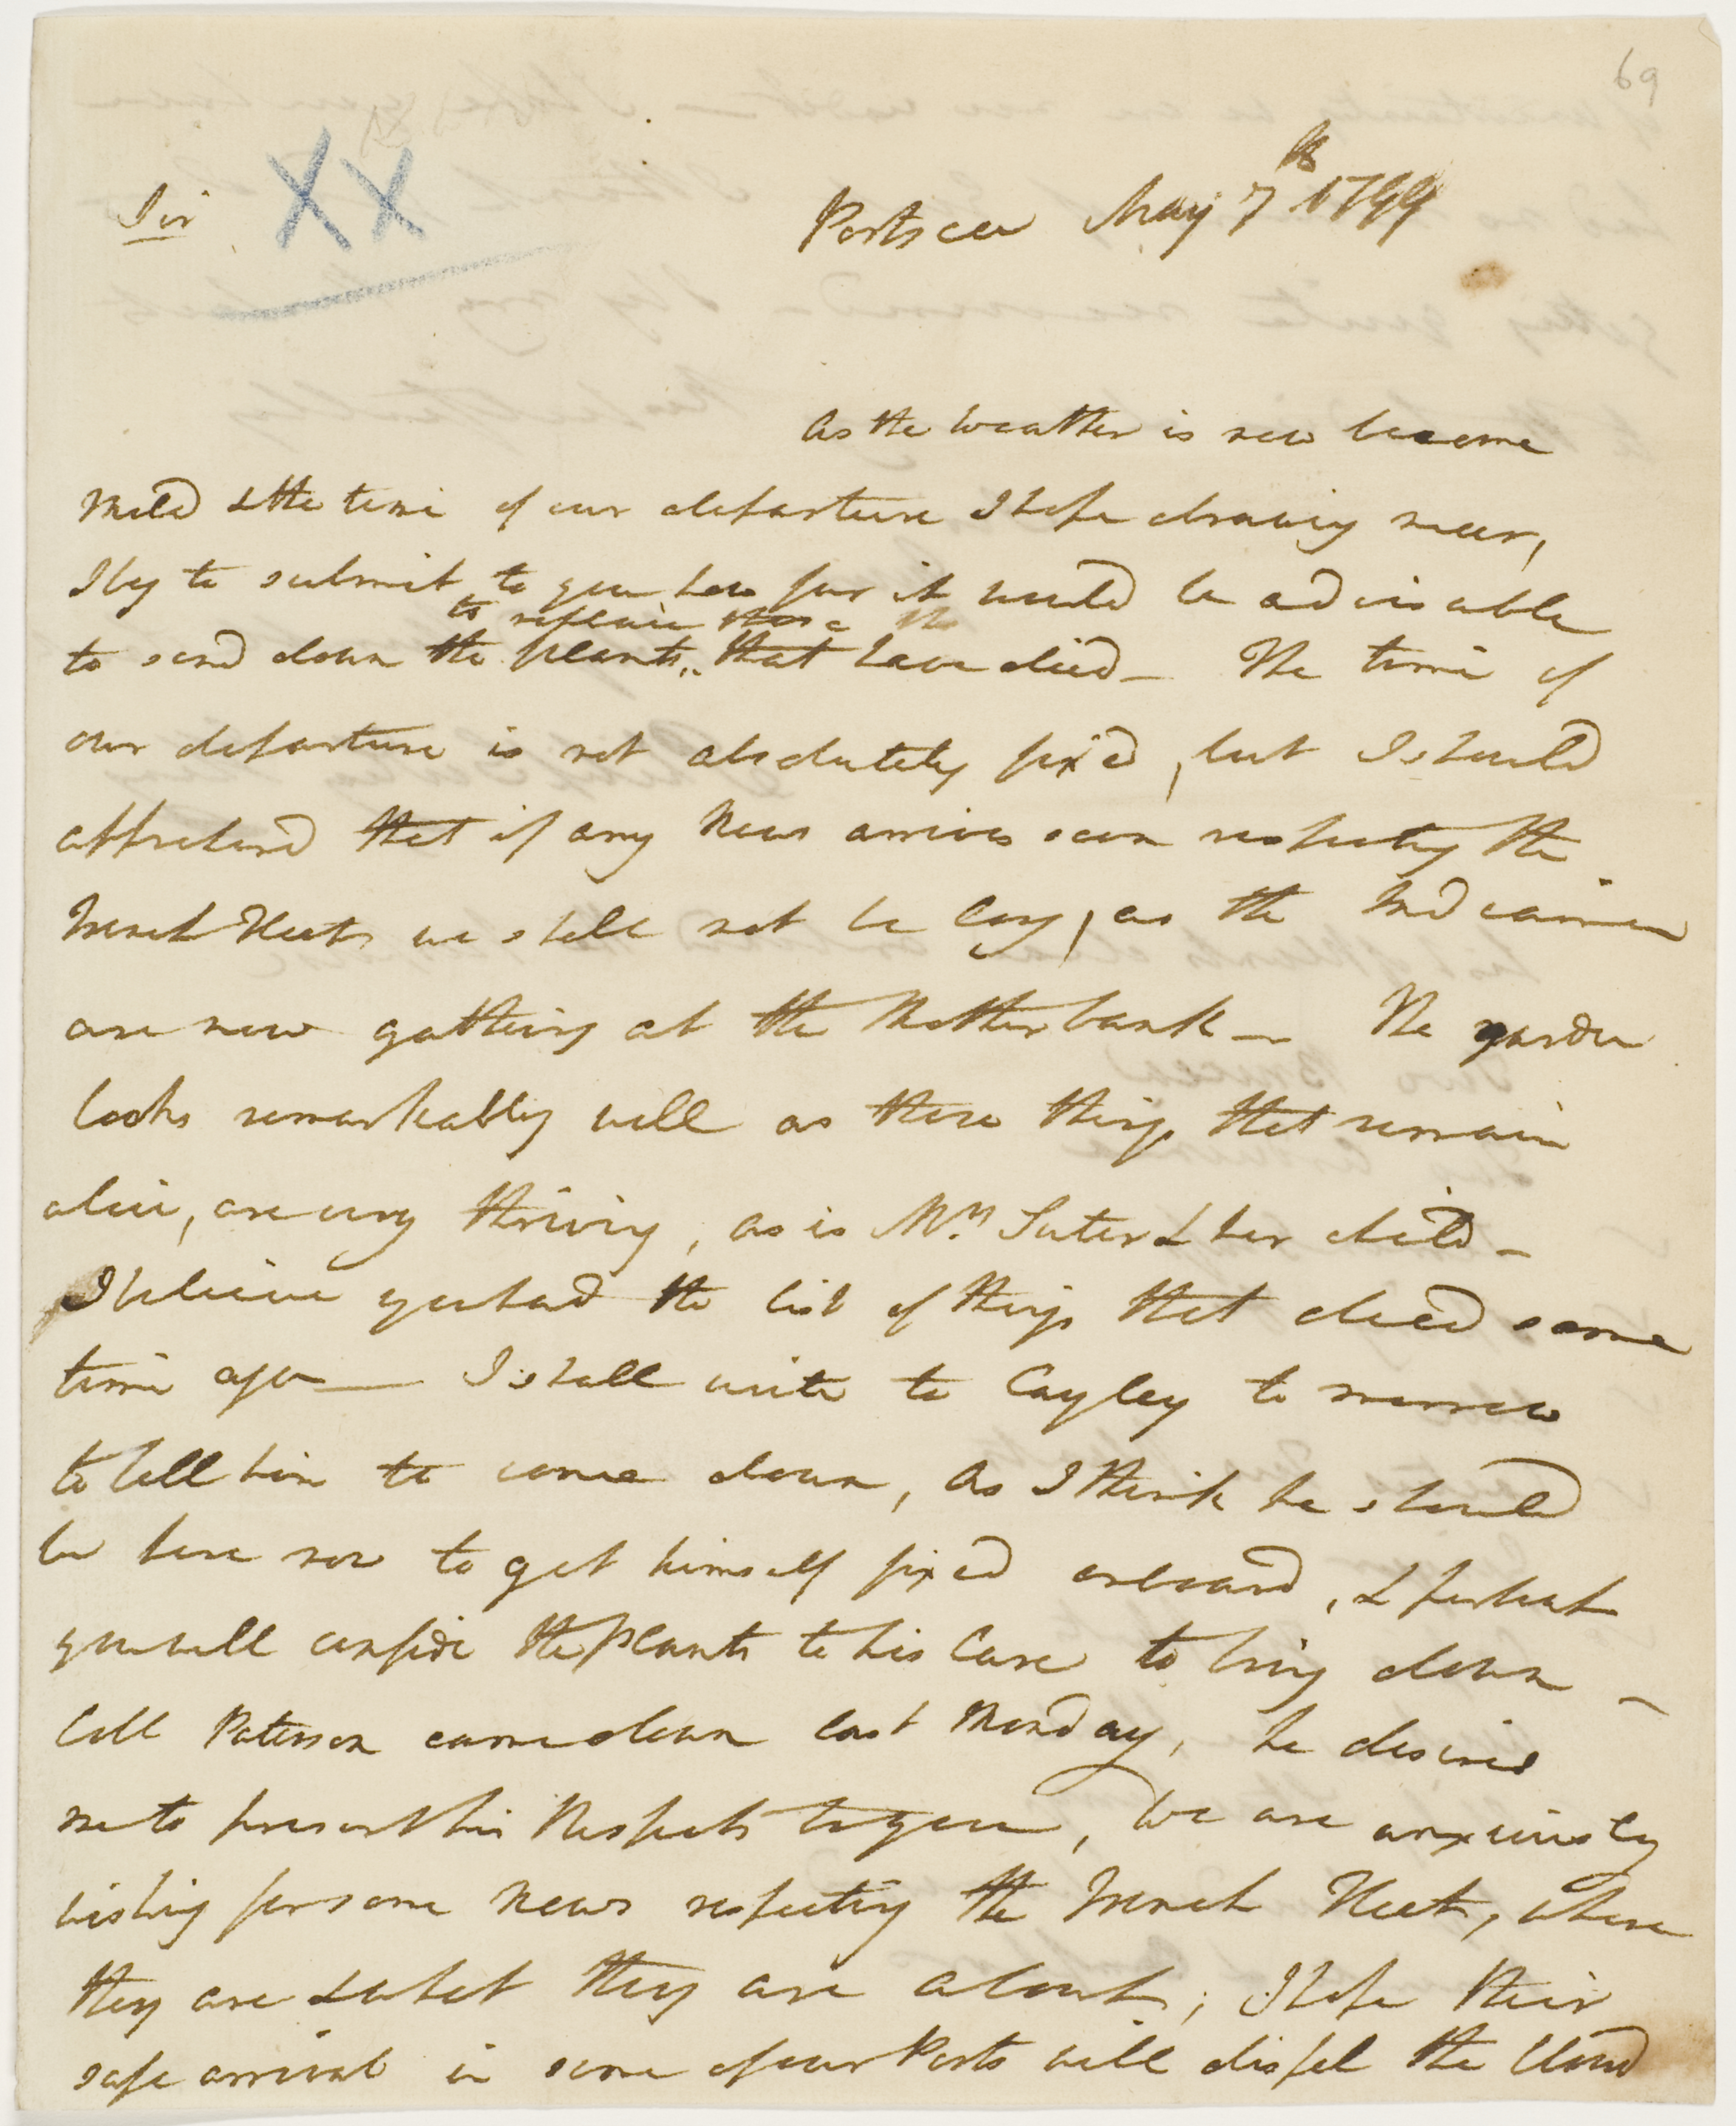 69
Sir XX
Portsea May 7th 1799
As the Weather is now become
mild & the time of our departure I hope drawing near,
I beg to submit to you how far it would be advisable
to replace those
to send down the plants that have died — The time of
our departure is not absolutely fix'd, but I should
apprehend that if any News arrives soon respecting the
French Fleet, we shall not be long, as the Indiamen
are now gathering at the Motherbank — The garden
looks remarkably well as those things that remain
alive, are very thriving, as is Mrs. Suter & her child —
I believe you had the list of things that died some
time ago — I shall write to Cayley to morrow
to tell him to come down, as I think he should
be here now to get himself fixed onboard, & perhaps
you will confide the plants to his Care to bring down —
Coll Paterson came down last Monday, he desires
me to present his Respects to you, We are anxiously
wishing for some News respecting the French Fleet, where
they are & what they are about, I hope their
safe arrival in some of our Ports will dispel the Cloud